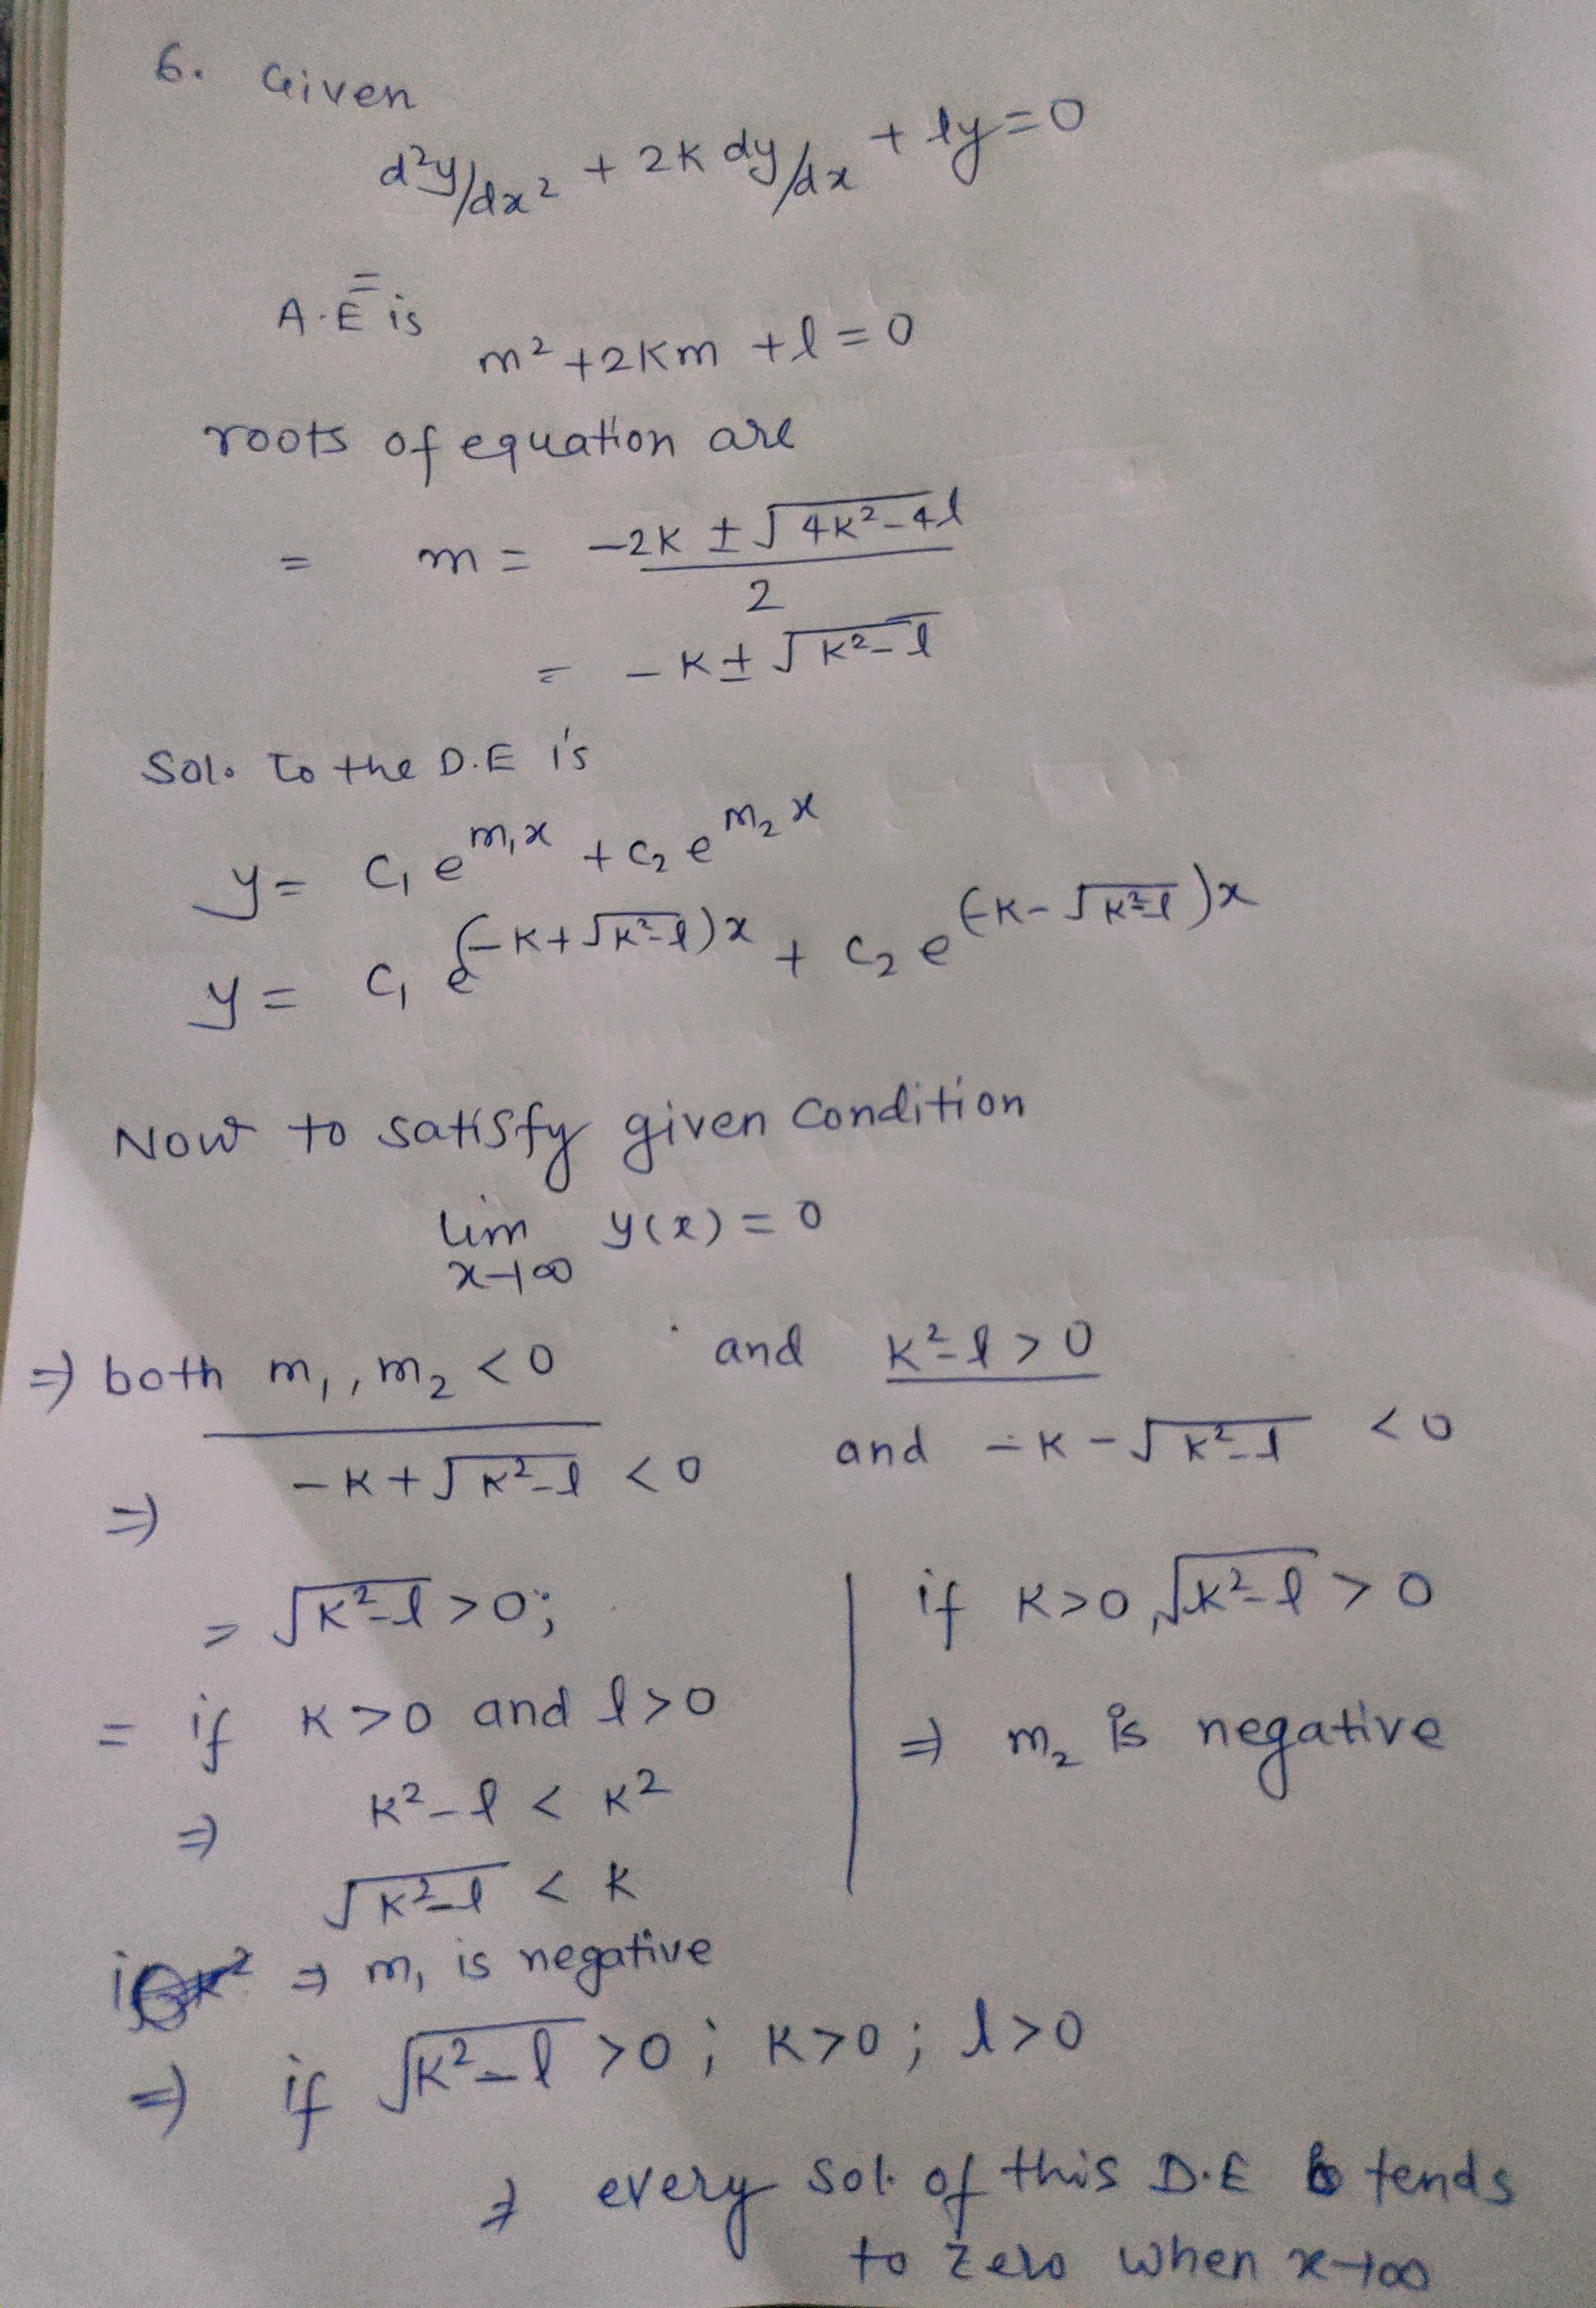 6. Given
d²y/dx² + 2K dy/dx + ly = 0
A.E is
m² + 2Km + l = 0
roots of equation are
= m = (-2K ± √(4K² - 4l)) / 2
= -K ± √(K² - l)
Sol. to the D.E is
y = C₁ e^(m₁x) + C₂ e^(m₂x)
y = C₁ e^((-K + √(K² - l))x) + C₂ e^((-K - √(K² - l))x)
Now to satisfy given condition
lim x→∞ y(x) = 0
⇒ both m₁, m₂ < 0 and K² - l > 0
⇒ -K + √(K² - l) < 0 and -K - √(K² - l) < 0
= √(K² - l) > 0;
= if K > 0 and l > 0
⇒ K² - l < K²
√(K² - l) < K
⇒ m₁ is negative
if K > 0, √(K² - l) > 0
⇒ m₂ is negative
⇒ if √(K² - l) > 0; K > 0; l > 0
⇒ every sol. of this D.E tends
to zero when x→∞